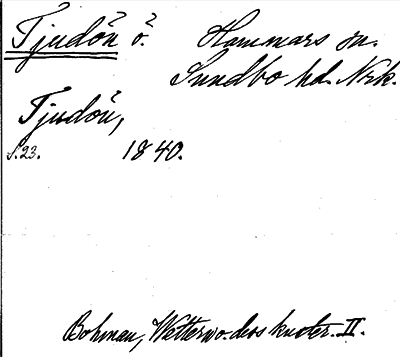 Tjudön ö. Hammars sn.
Sundbo hd. Nrk.
Tjudön,
S. 23. 1840.
Bohman, Wettern o. dess kuster. II.